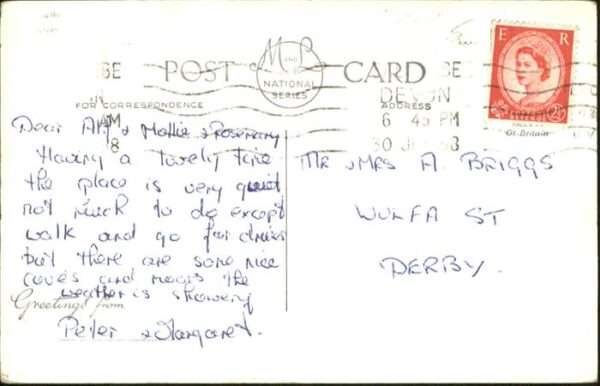 M AND B
POST CARD
NATIONAL SERIES
FOR CORRESPONDENCE
ADDRESS
E R
2½
Gt. Britain
DEVON
6 45 PM
AM
8
Dear Alf & Mollie & Rosemary
Having a lovely time
the place is very quiet
not much to do except
walk and go for drives
but there are some nice
coves and the
weather is showery
Peter & Margaret.
Greetings from
Mr & Mrs A. BRIGGS
WULFA ST
DERBY.